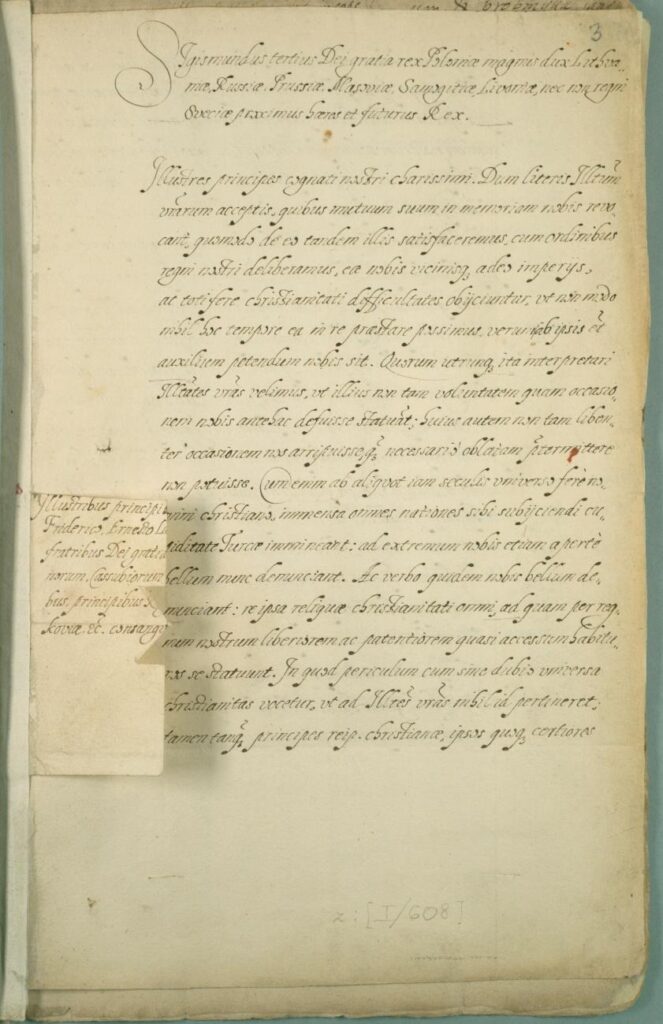 3
Sigismundus tertius Dei gratia rex Poloniæ magnus dux Lithva-
niæ, Russiæ, Prussiæ, Masoviæ, Samogitiæ Livoniæ, nec non regni
Sveciæ proximus hæres et futurus Rex.
Illustres principes cognati nostri charissimi. Dum literis Illtium
vrarum acceptis, quibus mutuum suum in memoriam nobis revo
cant, quomodo de eo tandem illis satisfaceremus, cum ordinibus
regni nostri deliberamus, ea nobis vicinisq; adeo imperijs,
ac toti fere christianitati difficultates obijciuntur, vt non modo
nihil hoc tempore ea in re præstare possimus, verum ab ipsis et
auxilium petendum nobis sit. Quorum utrunq; ita interpretari
Illtates vras velimus, vt illius non tam voluntatem quam occasio-
nem nobis antehac defuisse statuat; huius autem non tam liben-
ter occasionem nos arripuisse, q; necessario oblatam prtermittere
non potuisse. Cum enim ab aliquot iam sæculis universo fere no-
mini christiano, immensa omnes nationes sibi subijciendi cu-
piditate Turcæ immineant: ad extremum nobis etiam aperte
bellum nunc denunciant. Ac verbo quidem nobis bellum de-
nunciant: re ipsa reliquæ christianitati omni, ad quam per reg-
num nostrum liberiorem ac patentiorem quasi accessum habitu-
ros se statuunt. In quod periculum cum sine dubio vniversa
christianitas vocetur, vt ad Illtes vras nihil id pertineret;
tamen tanq; principes reip. christianæ, ipsos quoq; certiores
Illustribus principi
Friderico, Ernesto Lu
fratribus Dei gratia
norum, Cassubiorum
bus, principibus
koviæ etc. consangu
2: [I/608]